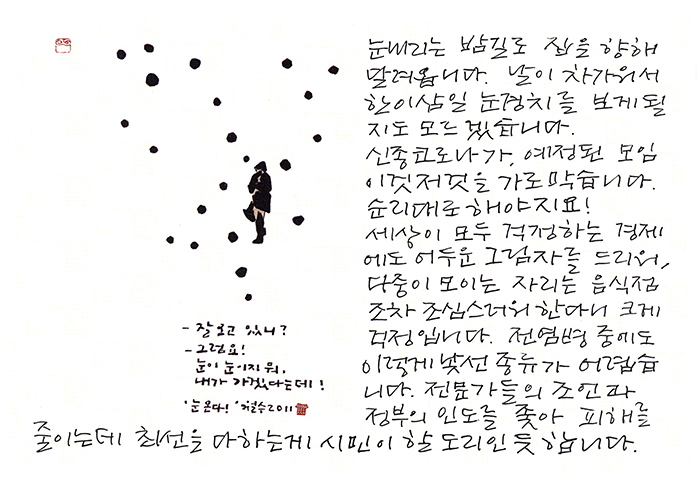 눈내리는 밤길로 집을 향해
달려옵니다. 날이 차가워서
한이삼일 눈경치를 보게될
지도 모르겠습니다.
신종코로나가, 예정된 모임
이것저것을 가로막습니다.
순리대로해야지요!
세상이 모두 걱정하는 경제
에도 어두운 그림자를 드리워,
다중이 모이는 자리는 음식점
조차 조심스러워한다니 크게
걱정입니다. 전염병 중에도
이렇게 낯선 종류가 어렵습
니다. 전문가들의 조언과
정부의 인도를 좇아 피해를
줄이는데 최선을 다하는게 시민이 할 도리인듯 합니다.
- 잘 보고 있니?
- 그럼요!
눈이 눈이지 뭐,
내가 가겠다는데!
'눈온다!' 이철수2011